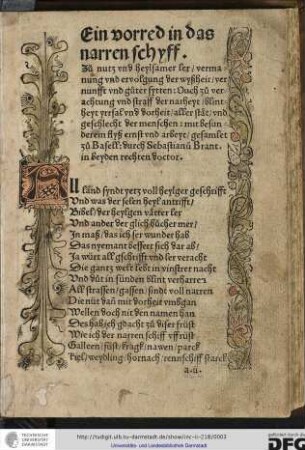 Ein vorred in das
narren schyff.
Zů nutz vnd heylsamer ler / verma
nung vnd ervolgung der wyßheit / ver
nunfft vnd gůter sytten: Ouch zů ver
achtung vnd straff der narheyt / blint
heyt yrrsal vnd dorheit / aller stät / vnd
geschlecht der menschen: mit besun
derem flyß ernst vnd arbeyt / gesamlet
zů Basell: durch Sebastianū Brant.
in beyden rechten doctor.
All land syndt yetz voll heylger geschrifft
Vnd was der selen heyl antrifft /
Bibel / der heylgen vätter ler
Vnd ander der glich bücher mer /
In maß / das ich ser wunder hab
Das nyemant bessert sich dar ab /
Ja würt all gschrifft vnd ler veracht
Die gantz welt lebt in vinstrer nacht
Vnd důt in sünden blint verharren
All strassen / gassen / sindt voll narren
Die nüt dan mit dorheit vmbgan
Wellen doch nit den namen han
Des hab ich gdacht zů diser früst
Wie ich der narren schiff vff rüst
Galleen / füst / kragk / nawen / parck
Kiel / weydling / hornach / rennschiff starck
a.ii.
TECHNISCHE
UNIVERSITÄT
DARMSTADT
http://tudigit.ulb.tu-darmstadt.de/show/inc-ii-218/0003
Universitäts- und Landesbibliothek Darmstadt
DFG